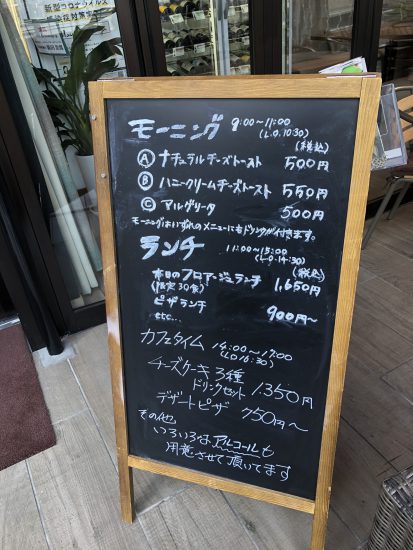 新型コロナウイルス
感染対策実施
モーニング 9:00~11:00
(L.O.10:30)
(税込)
Ⓐ ナチュラルチーズトースト 500円
Ⓑ ハニークリームチーズトースト 550円
Ⓒ アルゲリータ 500円
モーニングはいずれのメニューにもドリンクが付きます。
ランチ 11:00~15:00
(L.O.14:30)
(税込)
本日のフロマージュランチ 1,650円
(限定30食)
ピザランチ 900円~
etc...
カフェタイム 14:00~17:00
(LO16:30)
チーズケーキ3種
ドリンクセット 1.350円
デザートピザ 750円~
その他
いろいろなアルコールも
用意させて頂いてます